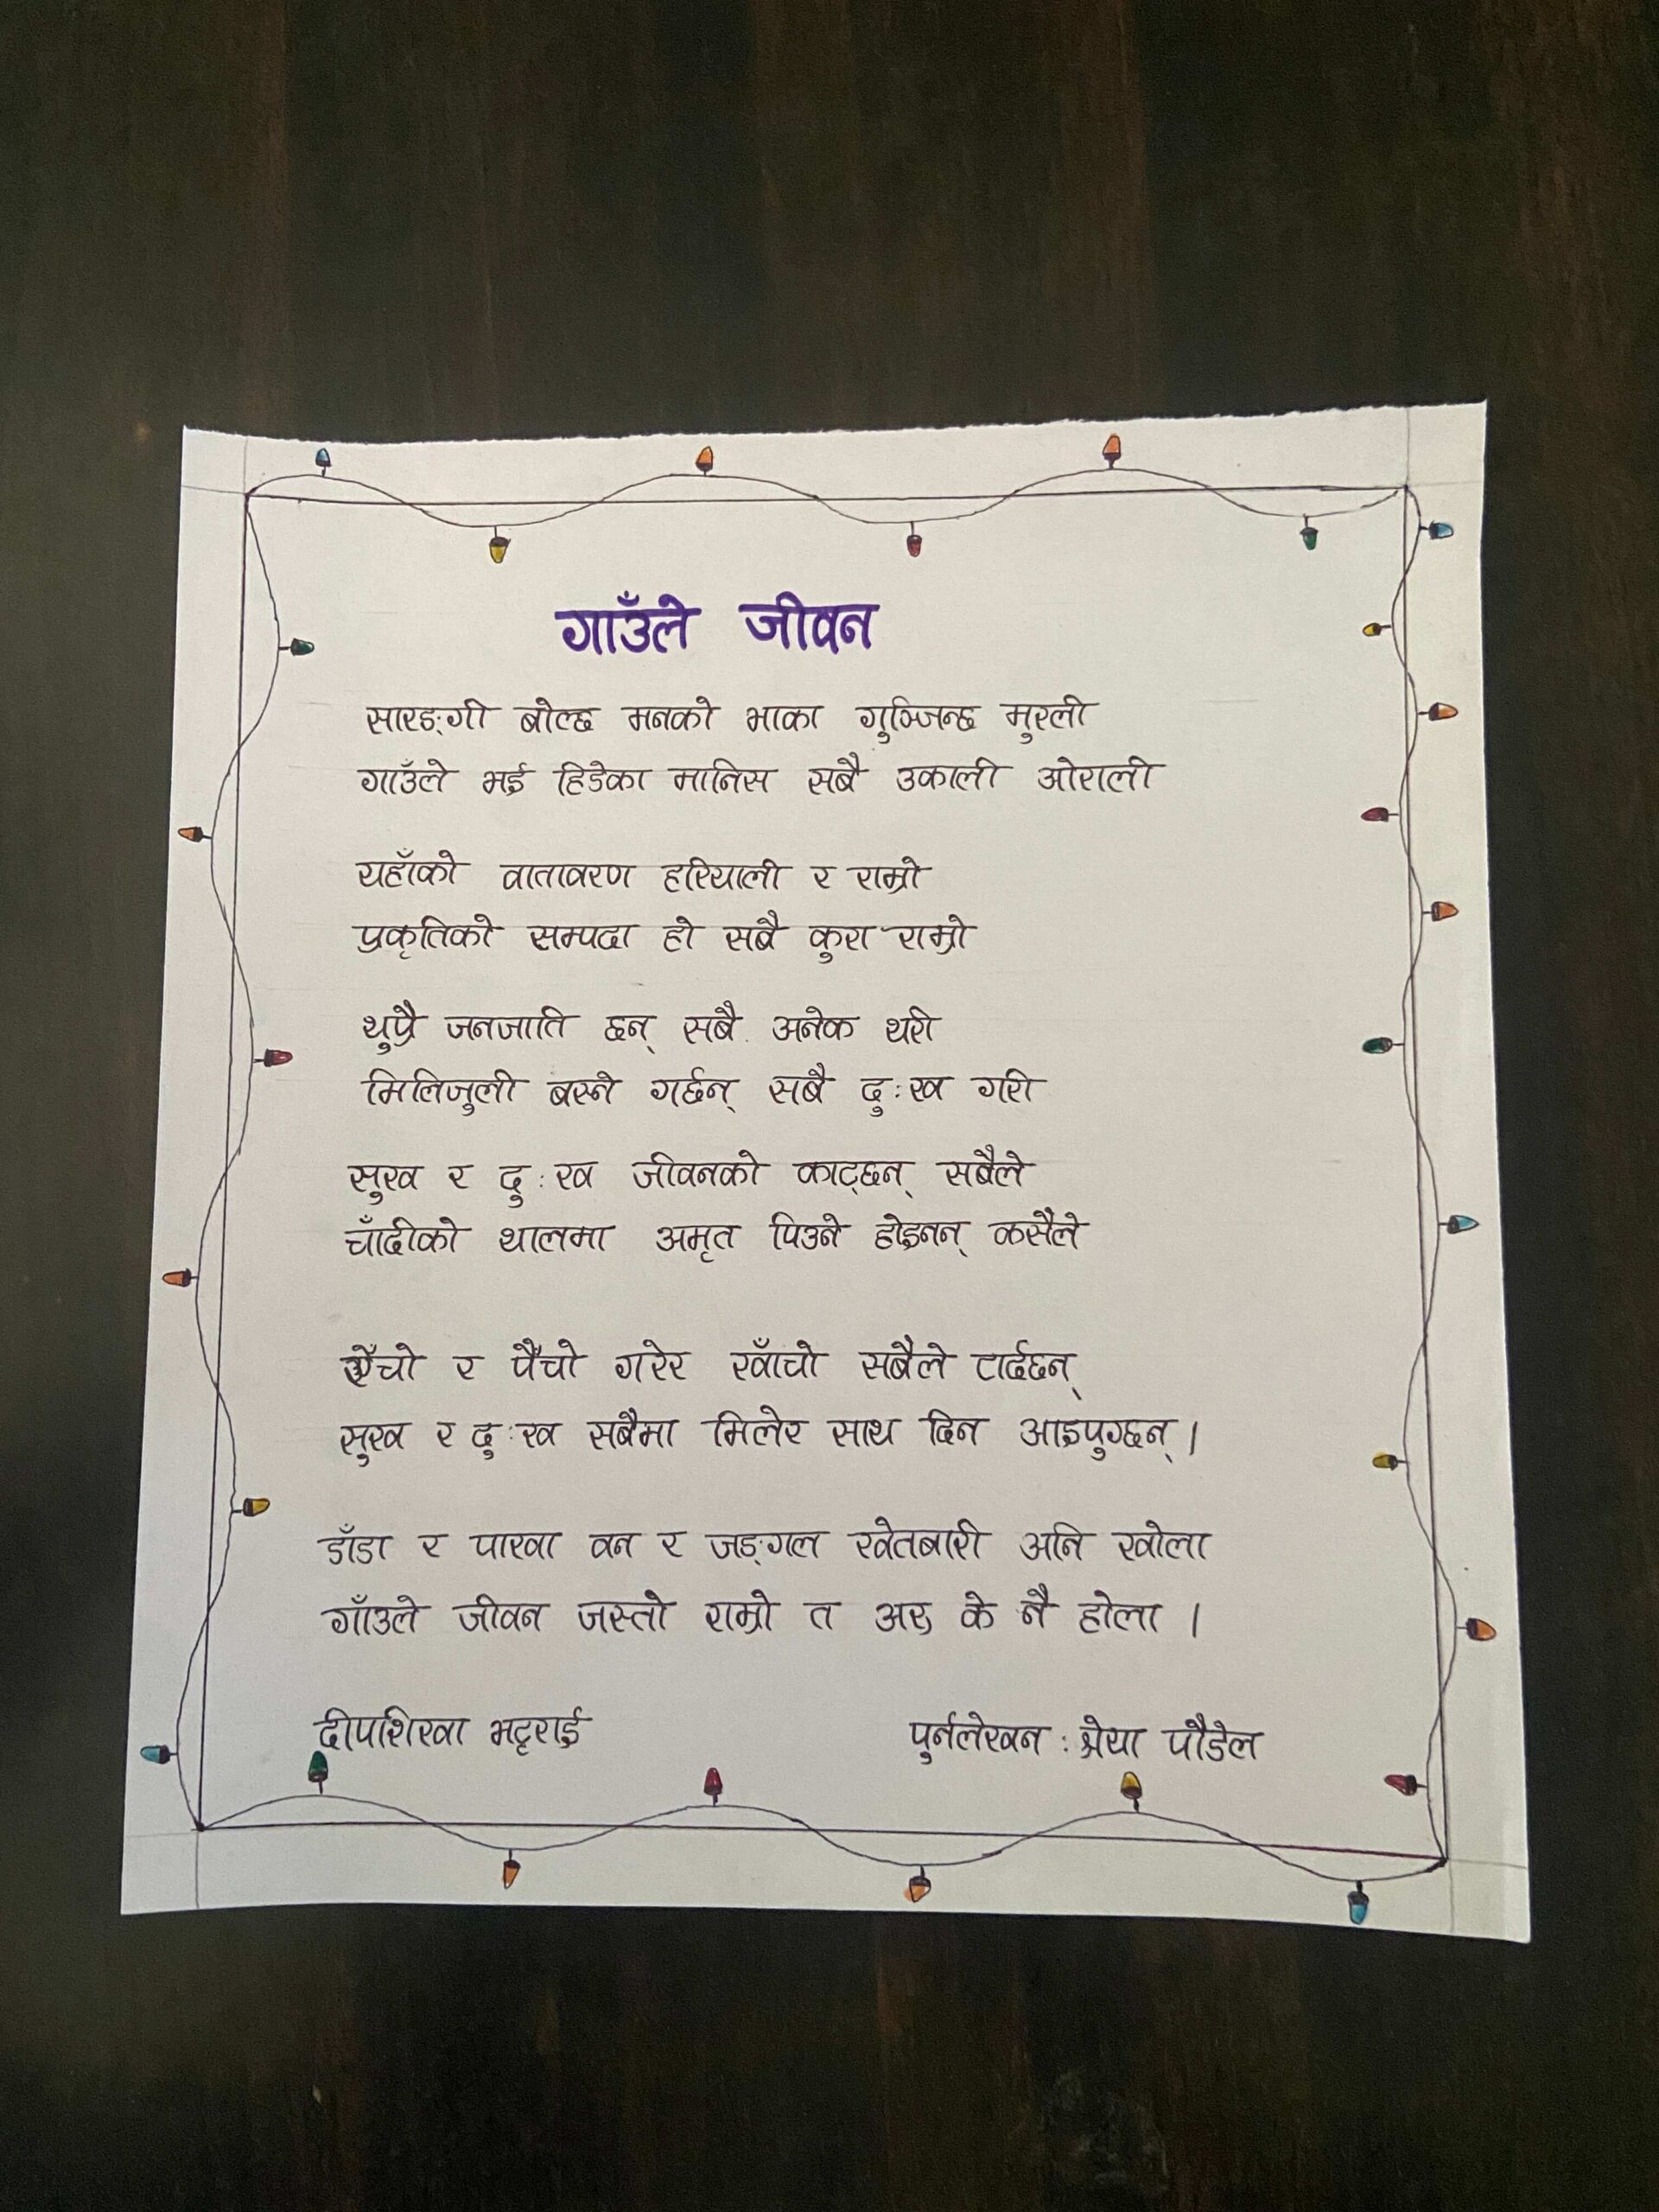 गाउँले जीवन
सारङ्गी बोल्छ मनको भाका गुञ्जिन्छ मुरली
गाउँले भई हिडेका मानिस सबै उकाली ओराली
यहाँको वातावरण हरियाली र राम्रो
प्रकृतिको सम्पदा हो सबै कुरा राम्रो
थुप्रै जनजाति छन् सबै अनेक थरी
मिलिजुली बस्ने गर्छन् सबै दुःख गरी
सुख र दुःख जीवनको काट्छन् सबैले
चाँदीको थालमा अमृत पिउने होइनन् कसैले
ऐँचो र पैँचो गरेर खाँचो सबैले टार्दछन्
सुख र दुःख सबैमा मिलेर साथ दिन आइपुग्छन् ।
डाँडा र पाखा वन र जङ्गल खेतबारी अनि खोला
गाँउले जीवन जस्तो राम्रो त अरु के नै होला ।
दीपाशिखा भट्टराई
पुर्नलेखन : श्रेया पौडेल